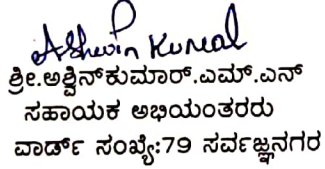 Ashwin Kumar
ಶ್ರೀ.ಅಶ್ವಿನ್‌ಕುಮಾರ್.ಎಮ್.ಎನ್
ಸಹಾಯಕ ಅಭಿಯಂತರರು
ವಾರ್ಡ್ ಸಂಖ್ಯೆ:79 ಸರ್ವಜ್ಞನಗರ